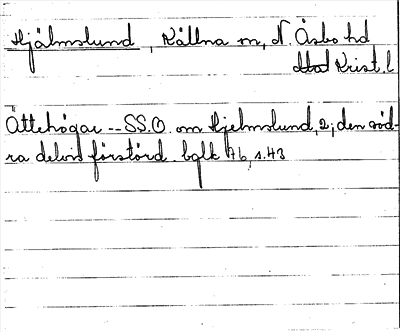 Hjälmslund, Källna sn, N. Åsbo hd
Krist. l.
Ättehögar -- SS.O. om Hjelmslund, 2; den söd-
ra delvis förstörd. bglk 76, s. 43